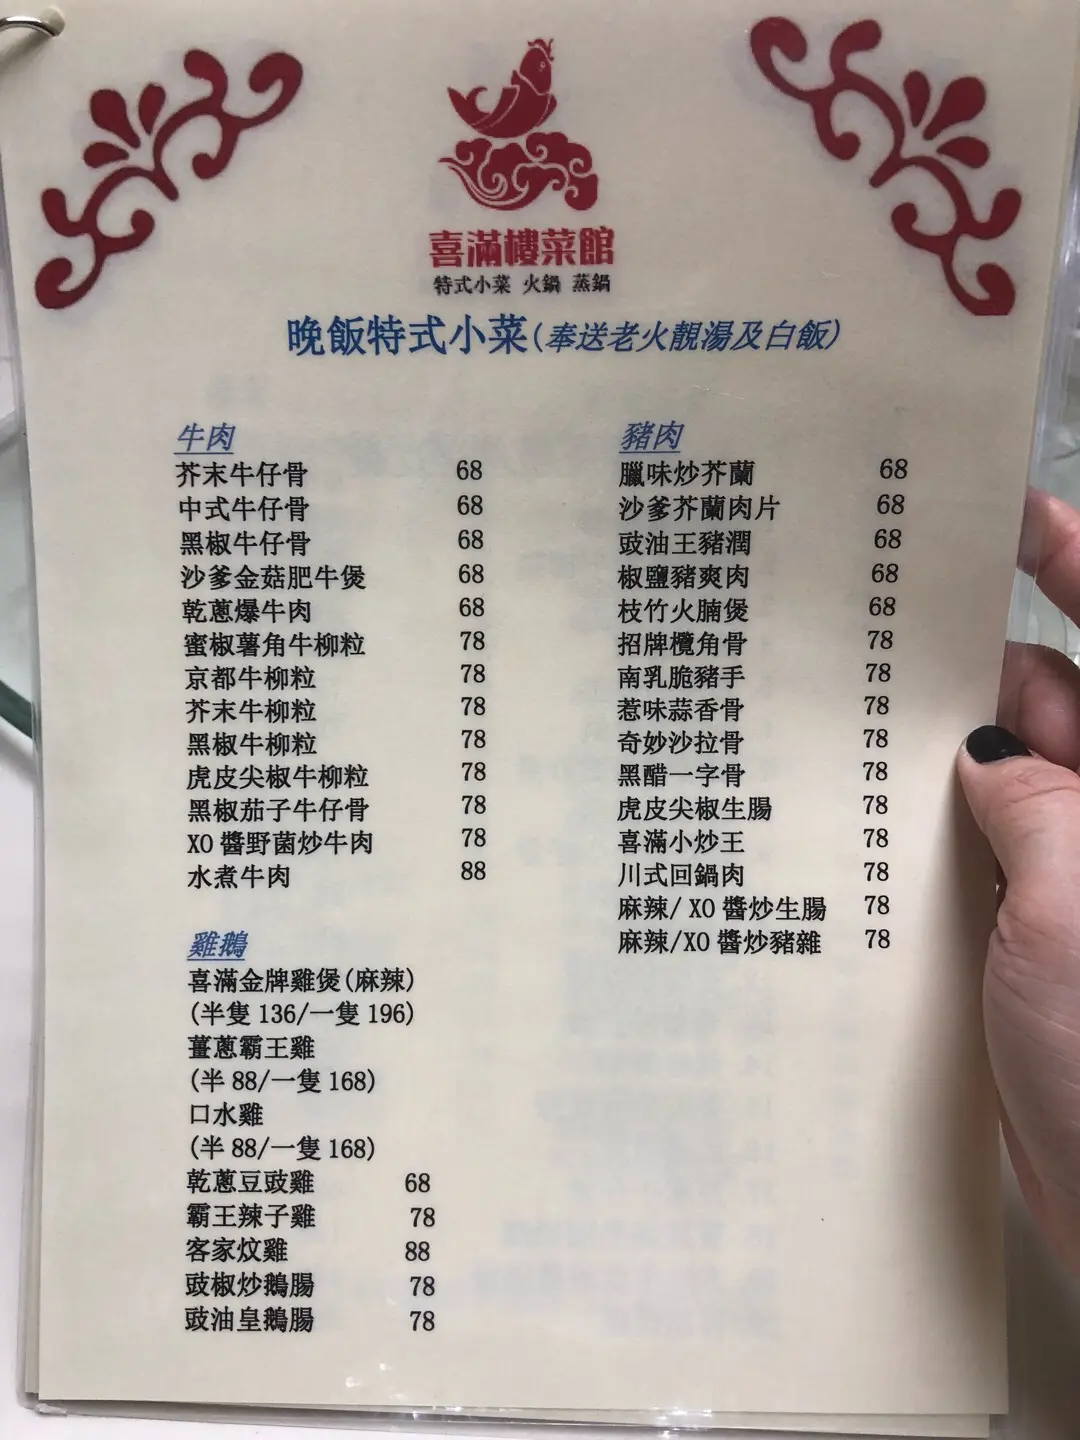 喜滿樓菜館
特式小菜 火鍋 蒸鍋
晚飯特式小菜(奉送老火靚湯及白飯)
牛肉
芥末牛仔骨 68
中式牛仔骨 68
黑椒牛仔骨 68
沙爹金菇肥牛煲 68
乾蔥爆牛肉 68
蜜椒薯角牛柳粒 78
京都牛柳粒 78
芥末牛柳粒 78
黑椒牛柳粒 78
虎皮尖椒牛柳粒 78
黑椒茄子牛仔骨 78
XO醬野菌炒牛肉 78
水煮牛肉 88
雞鵝
喜滿金牌雞煲(麻辣)
(半隻136/一隻196)
薑蔥霸王雞
(半88/一隻168)
口水雞
(半88/一隻168)
乾蔥豆豉雞 68
霸王辣子雞 78
客家炆雞 88
豉椒炒鵝腸 78
豉油皇鵝腸 78
豬肉
臘味炒芥蘭 68
沙爹芥蘭肉片 68
豉油王豬潤 68
椒鹽豬爽肉 68
枝竹火腩煲 68
招牌欖角骨 78
南乳脆豬手 78
惹味蒜香骨 78
奇妙沙拉骨 78
黑醋一字骨 78
虎皮尖椒生腸 78
喜滿小炒王 78
川式回鍋肉 78
麻辣/ XO醬炒生腸 78
麻辣/XO醬炒豬雜 78